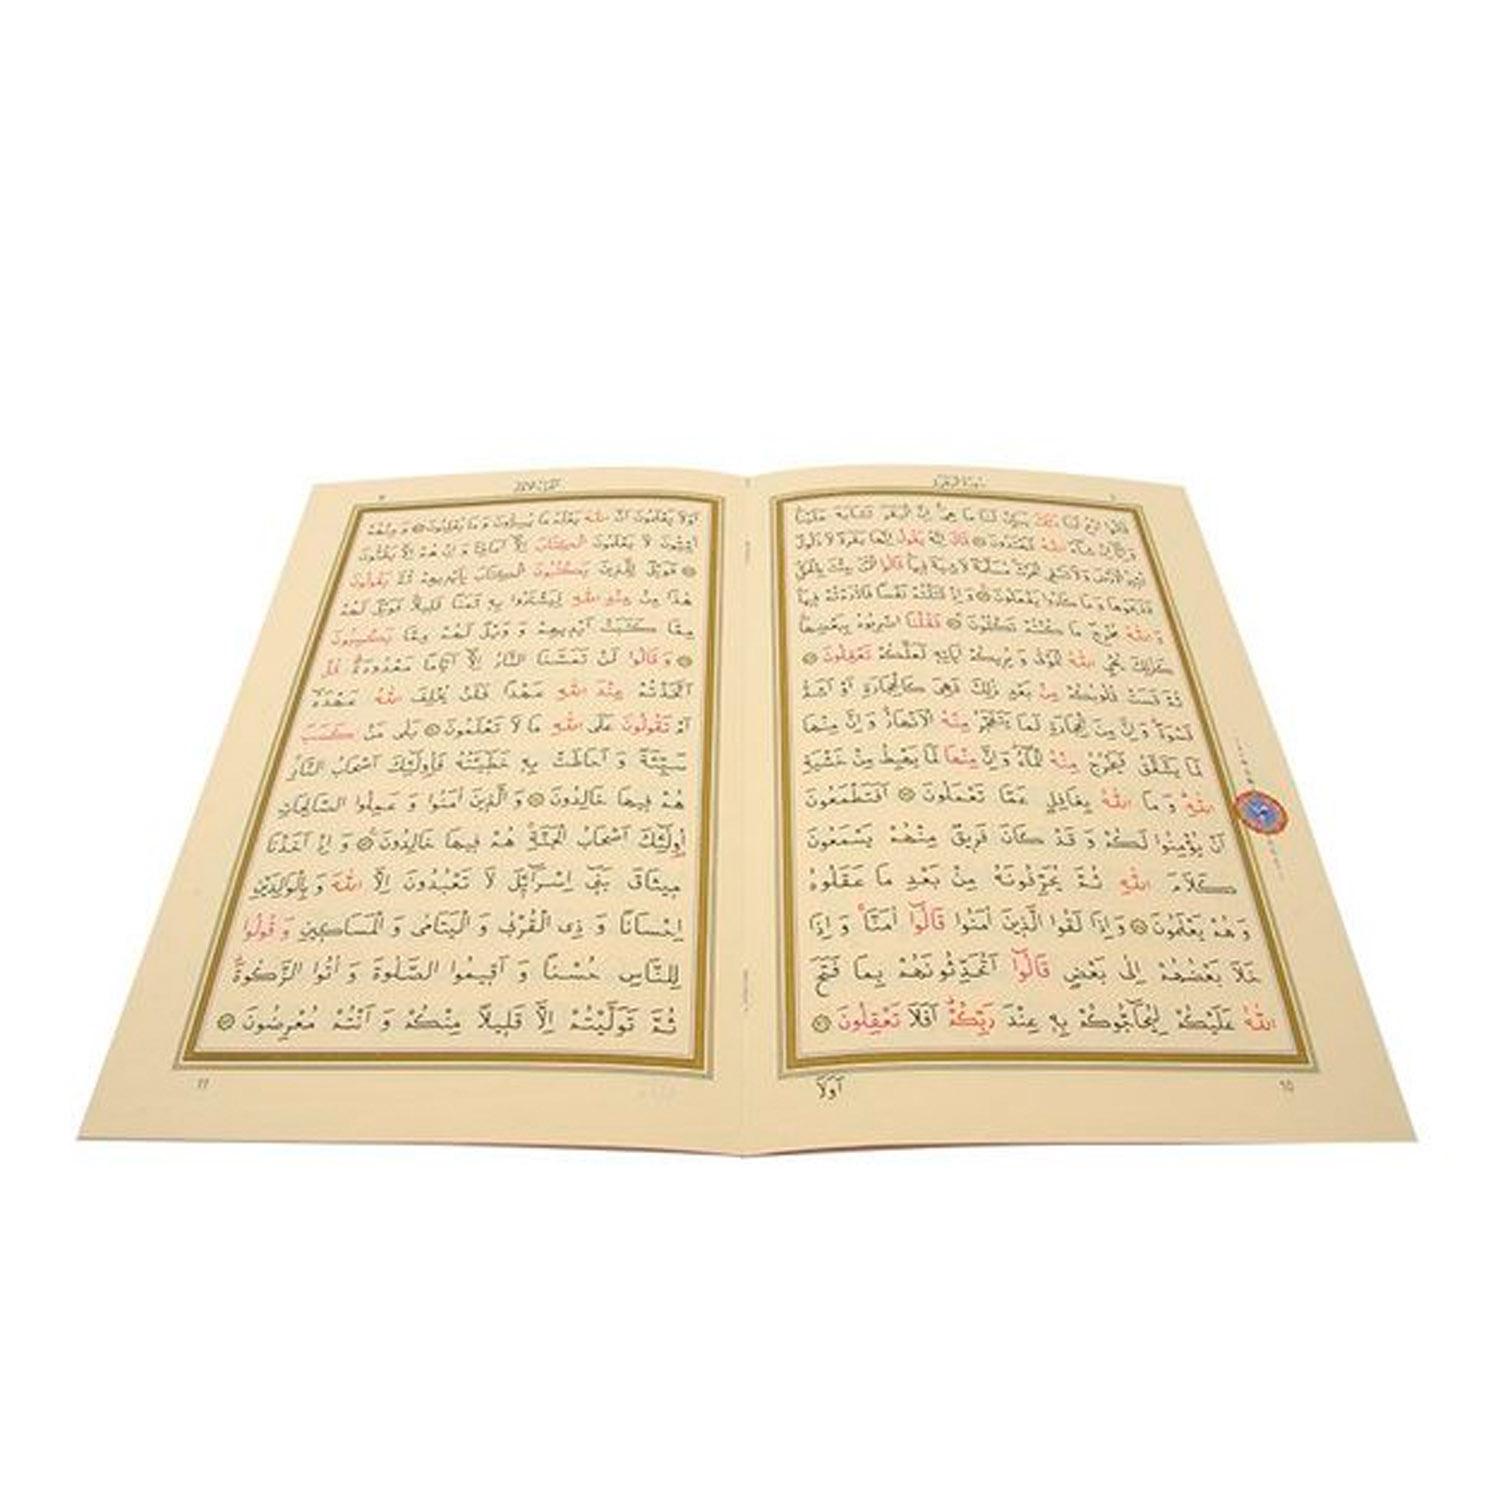 سورة البقرة
قالوا ادع لنا ربك يبين لنا ما هي ان البقر تشابه علينا
وانا ان شاء الله لمهتدون قال انه يقول انها بقرة لا ذلول
تثير الارض ولا تسقي الحرث مسلمة لا شية فيها قالوا الان جئت بالحق
فذبحوها وما كادوا يفعلون واذ قتلتم نفسا فادارءتم فيها
والله مخرج ما كنتم تكتمون فقلنا اضربوه ببعضها
كذلك يحي الله الموتى ويريكم اياته لعلكم تعقلون
ثم قست قلوبكم من بعد ذلك فهي كالحجارة او اشد
قسوة وان من الحجارة لما يتفجر منه الانهار وان منها
لما يشقق فيخرج منه الماء وان منها لما يهبط من خشية
الله وما الله بغافل عما تعملون افتطمعون
ان يؤمنوا لكم وقد كان فريق منهم يسمعون
كلام الله ثم يحرفونه من بعد ما عقلوه
وهم يعلمون واذا لقوا الذين امنوا قالوا امنا واذا
خلا بعضهم الى بعض قالوا اتحدثونهم بما فتح
الله عليكم ليحاجوكم به عند ربكم افلا تعقلون
اولا
١٥
اولا يعلمون ان الله يعلم ما يسرون وما يعلنون ومنهم
اميون لا يعلمون الكتاب الا اماني وان هم الا يظنون
فويل للذين يكتبون الكتاب بايديهم ثم يقولون
هذا من عند الله ليشتروا به ثمنا قليلا فويل لهم
مما كتبت ايديهم وويل لهم مما يكسبون
وقالوا لن تمسنا النار الا اياما معدودة قل
اتخذتم عند الله عهدا فلن يخلف الله عهده
ام تقولون على الله ما لا تعلمون بلى من كسب
سيئة واحاطت به خطيئته فاولئك اصحاب النار
هم فيها خالدون والذين امنوا وعملوا الصالحات
اولئك اصحاب الجنة هم فيها خالدون واذ اخذنا
ميثاق بني اسرائل لا تعبدون الا الله وبالوالدين
احسانا وذي القربى واليتامى والمساكين وقولوا
للناس حسنا واقيموا الصلوة واتوا الزكوة
ثم توليتم الا قليلا منكم وانتم معرضون
١١